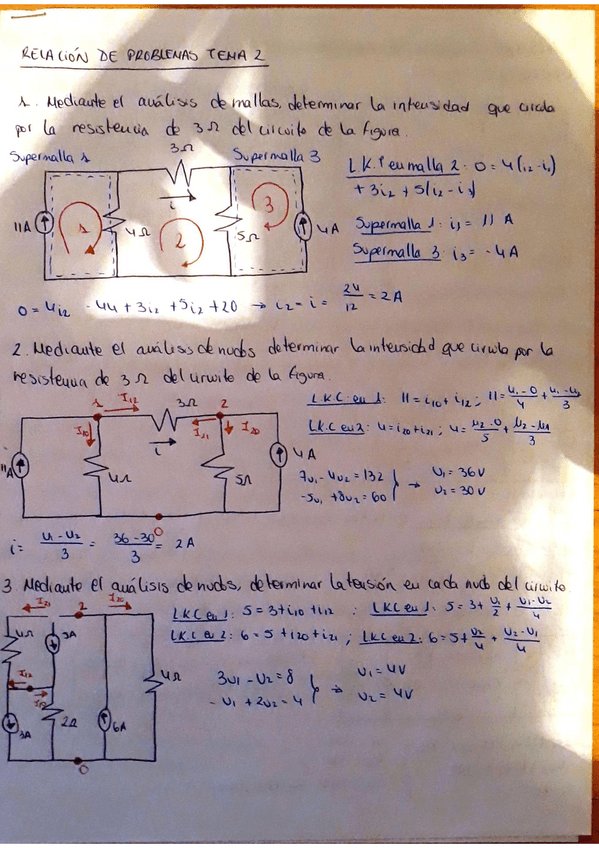 RELACIÓN DE PROBLEMAS TEMA 2
1. Mediante el análisis de mallas, determinar la intensidad que circula
por la resistencia de 3Ω del circuito de la figura.
Supermalla 1
3Ω
Supermalla 3
i
11A
1
4Ω
2
5Ω
3
4A
L.K.T en malla 2: 0=4(i2-i1)
+3i2+5(i2-i3)
Supermalla 1: i1= 11 A
Supermalla 3: i3= -4A
0=4i2 -44+3i2+5i2+20 → i2=i= 24/12 = 2A
2. Mediante el análisis de nudos determinar la intensidad que circula por la
resistencia de 3Ω del circuito de la figura.
1 I12 3Ω 2
I10 i I21 I20
11A
4Ω
5Ω
4A
0
L.K.C en 1: 11=i10+i12; 11= u1-0/4 + u1-u2/3
L.K.C en 2: 4=i20+i21; 4= u2-0/5 + u2-u1/3
7u1-4u2=132
-5u1+8u2=60
→ u1=36V
u2=30V
i= u1-u2/3 = 36-30/3 = 2A
3 Mediante el análisis de nudos, determinar la tensión en cada nudo del circuito
I21 2 I20
4Ω
3A
I12
I10
3A
2Ω
6A
4Ω
0
LKC en 1: 5=3+i10+i12 ; LKC en 1: 5=3+ u1/2 + u1-u2/4
LKC en 2: 6=5+i20+i21 ; LKC en 2: 6=5+ u2/4 + u2-u1/4
3u1-u2=8
-u1+2u2=4
⇒ u1=4V
u2=4V